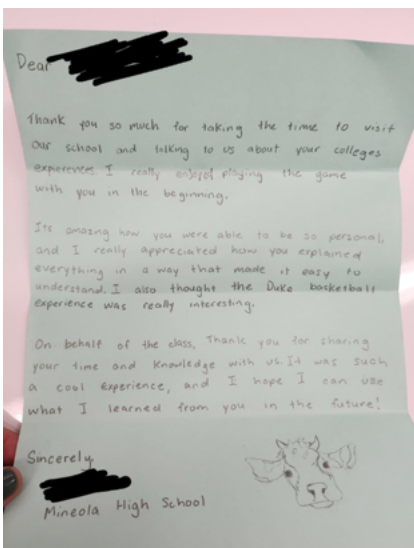 Dear
Thank you so much for taking the time to visit
our school and talking to us about your colleges
experiences. I really enjoyed playing the game
with you in the beginning.
Its amazing how you were able to be so personal,
and I really appreciated how you explained
everything in a way that made it easy to
understand. I also thought the Duke basketball
experience was really interesting.
On behalf of the class, Thank you for sharing
your time and knowledge with us. It was such
a cool experience, and I hope I can use
what I learned from you in the future!
Sincerely
Mineola High School